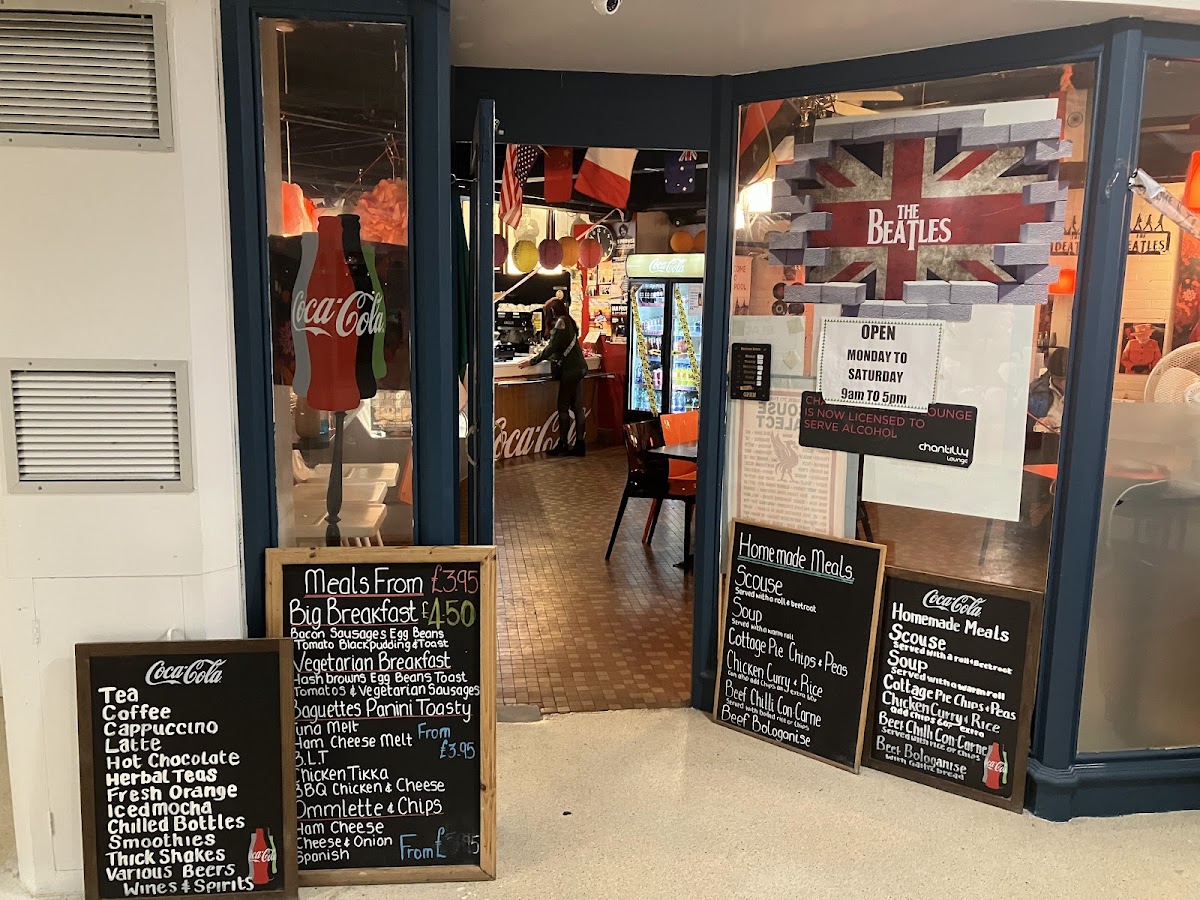 Coca-Cola
Coca-Cola
Coca-Cola
THE
BEATLES
BEATLES
OPEN
MONDAY TO
SATURDAY
9am TO 5pm
LOUNGE
IS NOW LICENSED TO
SERVE ALCOHOL
chantilly
lounge
OPEN
Coca-Cola
Tea
Coffee
Cappuccino
Latte
Hot Chocolate
Herbal Teas
Fresh Orange
Iced mocha
Chilled Bottles
Smoothies
Thick Shakes
Various Beers
Wines & Spirits
Coca-Cola
Meals From £3.95
Big Breakfast £4.50
Bacon Sausages Egg Beans
Tomato Blackpudding & Toast
Vegetarian Breakfast
Hashbrowns Egg Beans Toast
Tomatos & Vegetarian Sausages
Baguettes Panini Toasty
Tuna Melt
Ham Cheese Melt From
£3.95
B.L.T
Chicken Tikka
BBQ Chicken & Cheese
Ommlette & Chips
Ham Cheese
Cheese & Onion
Spanish From £3.95
Homemade Meals
Scouse
Served with a roll & beetroot
Soup
Served with a warm roll
Cottage Pie Chips & Peas
Chicken Curry & Rice
Can also add Chips any extra 60p
Beef Chilli Con Carne
Served with boiled rice or chips
Beef Bologanise
Coca-Cola
Homemade Meals
Scouse
Served with a roll & Beetroot
Soup
Served with a warm roll
Cottage Pie Chips & Peas
Chicken Curry & Rice
Add chips 60p extra
Beef Chilli Con Carne
Served with rice or chips
Beef Bologanise
with Garlic bread
Coca-Cola